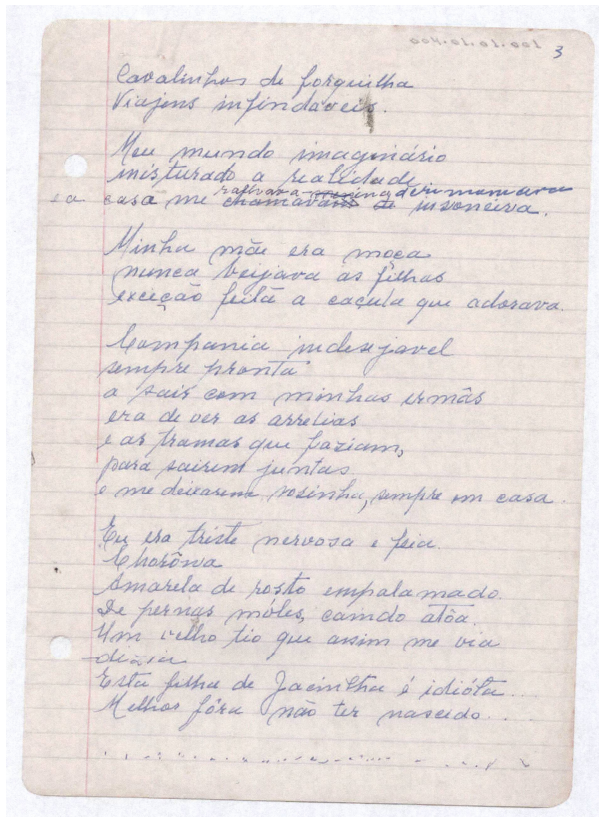 004.01.01.001
3
Cavalinhos de forquilha
Viajens infindaveis.
Meu mundo imaginário
misturado a realidade
ralhava
e a casa me chamavam de inzoneira.
Minha mãe era moça
nunca beijava as filhas
exceição feita a caçula que adorava.
Compania indesejavel
sempre pronta
a sair com minhas irmãs
era de ver as arrelias
e as tramas que faziam,
para sairem juntas
e me deixarem sosinha, sempre em casa.
Eu era triste nervosa e feia.
Chorôna
Amarela de rosto empalamado.
De pernas móles, caindo atôa.
Um velho tio que assim me via
dizia
Esta filha de Jacintha é idióta...
Melhor fôra não ter nascido...